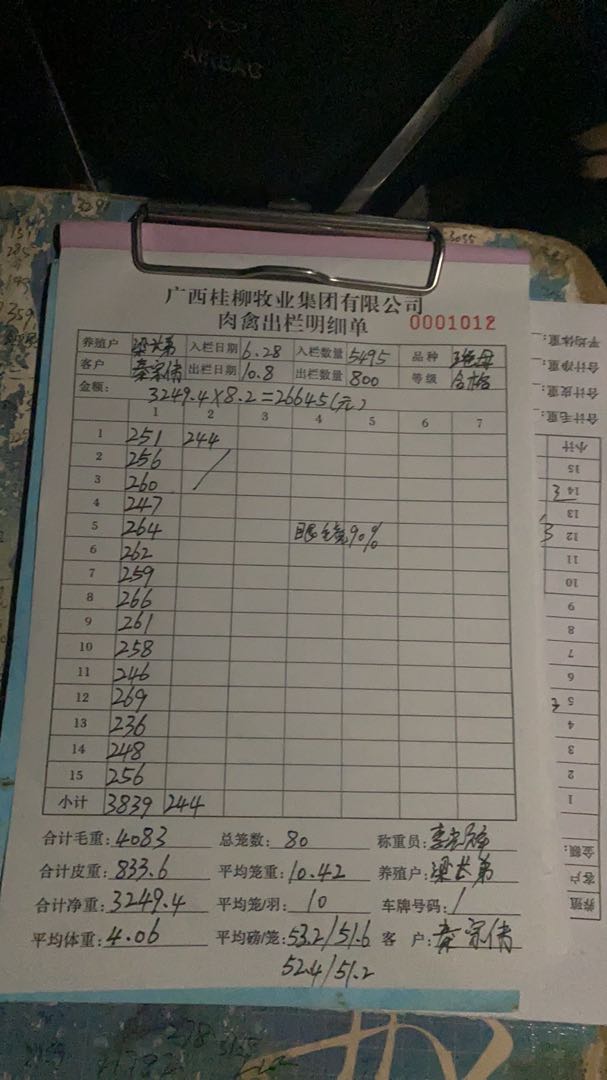 AIRBAG
广西桂柳牧业集团有限公司
肉禽出栏明细单 0001012
养殖户 梁长弟 入栏日期 6.28 入栏数量 5495 品种
客户 秦宗倩 出栏日期 10.8 出栏数量 800 等级 合格
金额: 3249.4×8.2=26645(元)
1 2 3 4 5 6 7
1 251 244
2 256
3 260
4 247
5 264 眼镜90%
6 262
7 259
8 266
9 261
10 258
11 246
12 269
13 236
14 248
15 256
小计 3839 244
合计毛重: 4083 总笼数: 80 称重员:
合计皮重: 833.6 平均笼重: 10.42 养殖户: 梁长弟
合计净重: 3249.4 平均笼/羽: 10 车牌号码: /
平均体重: 4.06 平均磅/笼: 53.2/51.6 客 户: 秦宗倩
52.4/51.2
平均体重:
合计净重:
合计皮重:
合计毛重:
小计
15
14
13
12
11
10
9
8
7
6
5
4
3
2
1
金额:
客户
养殖